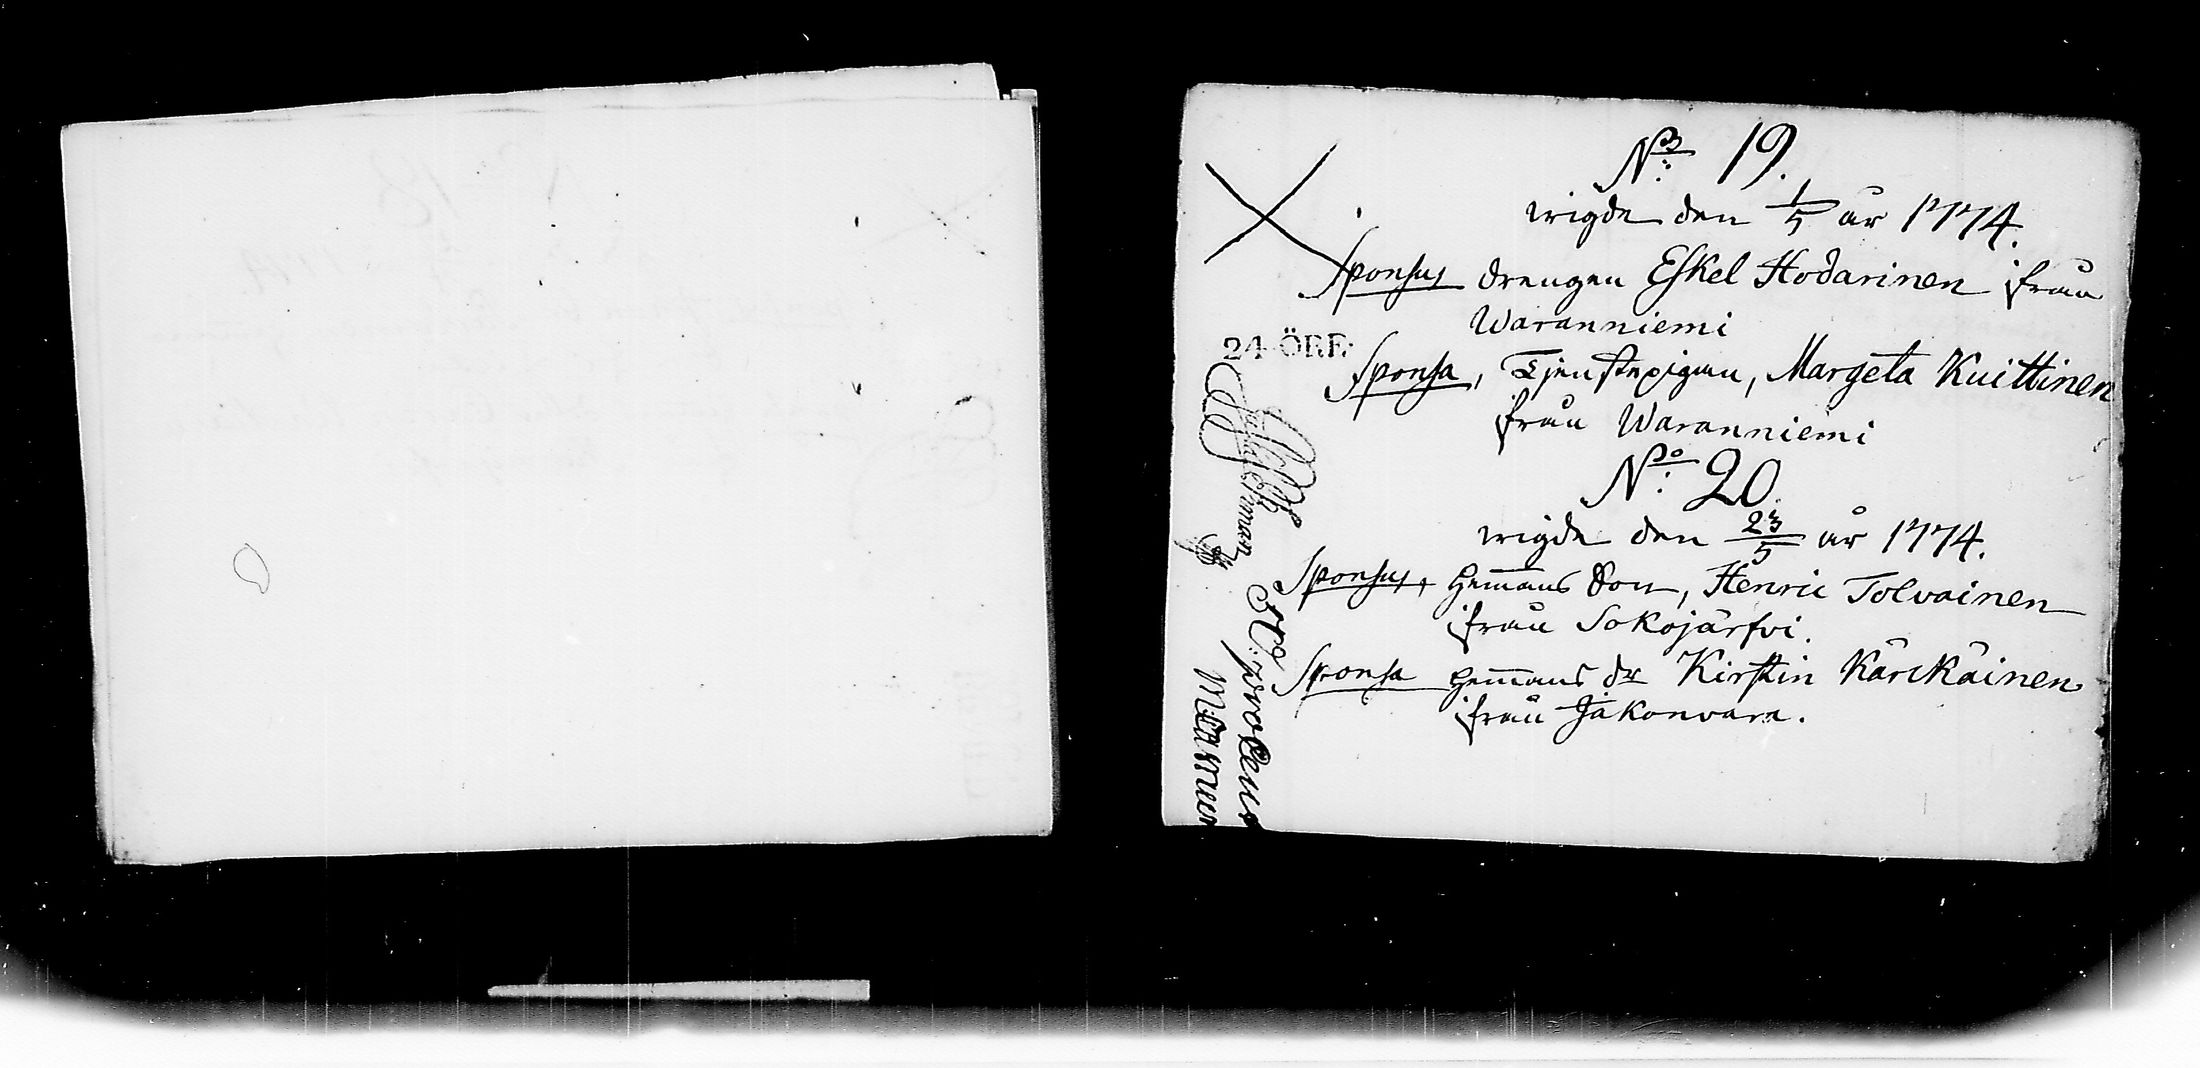 No: 19.
wigde den 1/5 år 1774.
Sponsus drengen Eskel Hodarinen ifrån
Waranniemi
24 ÖRE.
Sponsa, Tjenstepigan, Margeta Kuittinen
ifrån Waranniemi
No: 20.
wigde den 23/5 år 1774.
Sponsus, Hemans Son, Henric Tolvainen
ifrån Sokojärfvi.
Sponsa Hemans dr Kirstin Kärckäinen
ifrån Jakonvara.